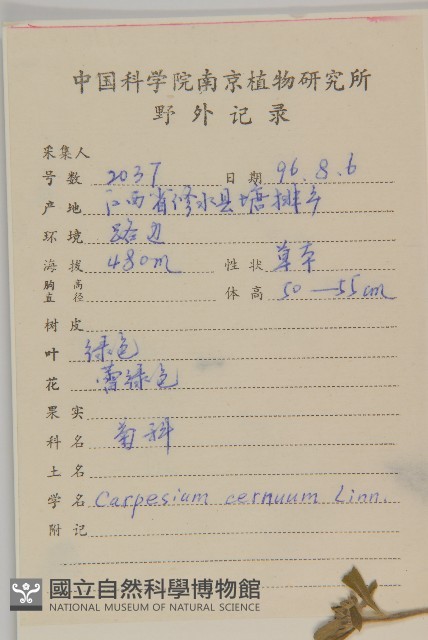 中国科学院南京植物研究所
野外记录
采集人
号数 2037 日期 96.8.6
产地 江西省修水县塘排乡
环境 路边
海拔 480m 性状 草本
胸高直径 体高 50—55cm
树皮
叶 绿色
花 蕾绿色
果实
科名 菊科
土名
学名 Carpesium cernuum Linn.
附记
國立自然科學博物館
NATIONAL MUSEUM OF NATURAL SCIENCE